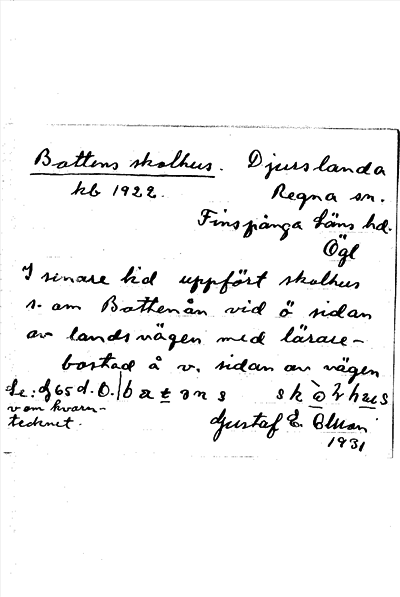 Battens skolhus. Djurslanda
kb 1922. Regna sn.
Finspånga läns hd.
Ögl
I senare tid uppfört skolhus
s. om Battenån vid ö sidan
av landsvägen med lärare-
bostad å v. sidan av vägen
v om kvarn-
tecknet.
Gustaf E. Olson
1931